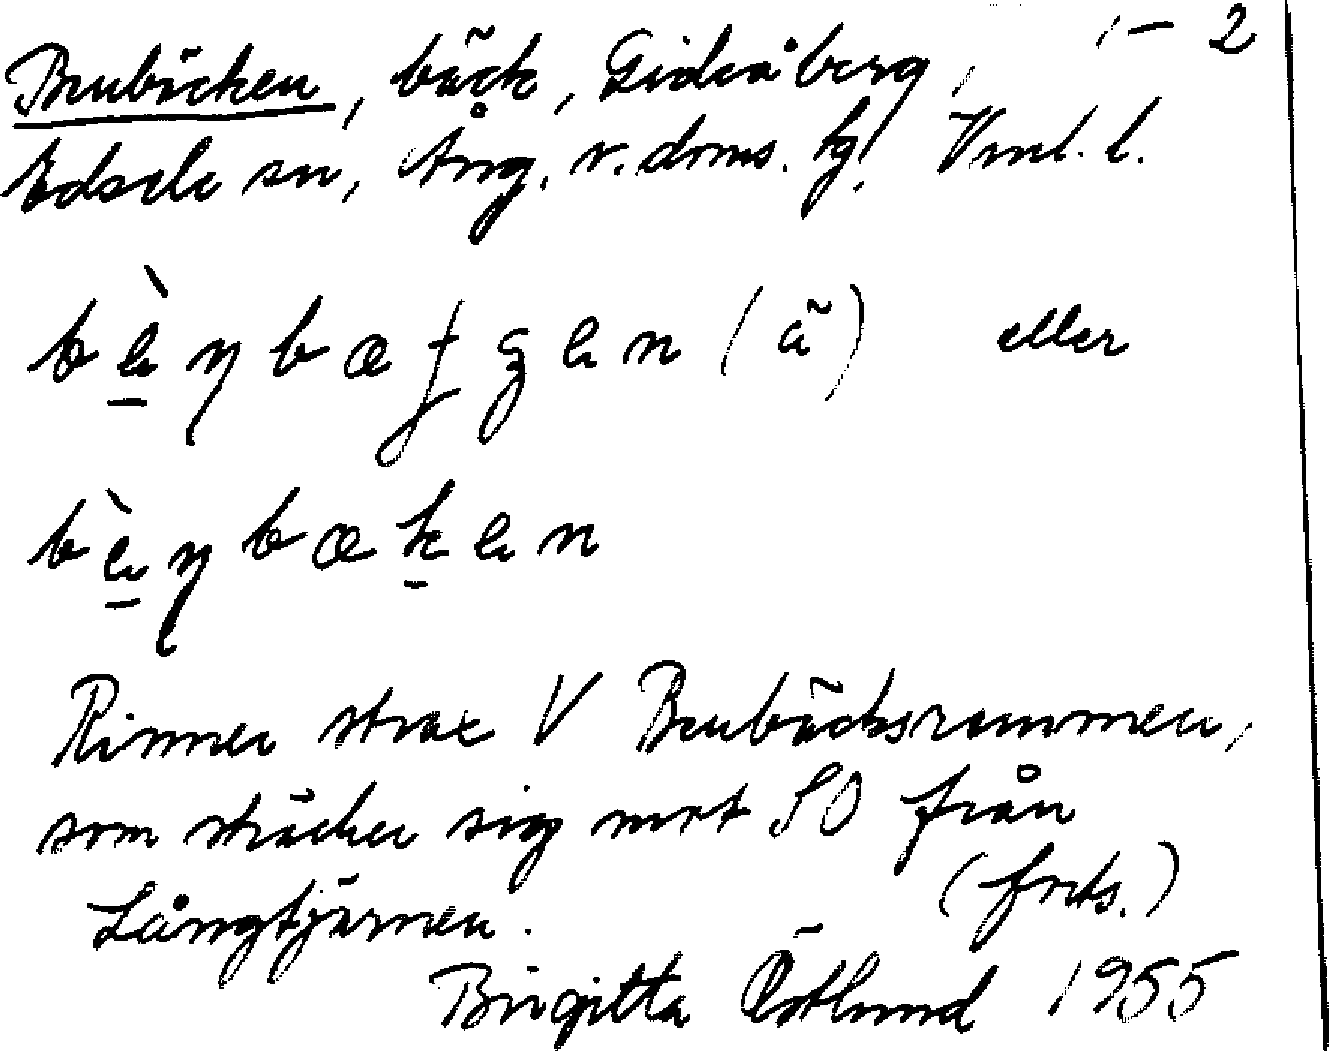 Benbäcken, bäck, Gideåberg, 1-2
Edsele sn, Ång. v. doms. tg, Vnl. l.
bè̱ŋbæʄgen (ã) eller
bè̱ŋbæḵen
Rinner strax V Benbäcksrammen,
som sträcker sig mot SO från
Långtjärnen. (forts.)
Birgitta Östlund 1955